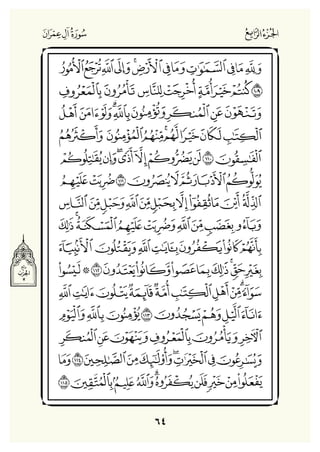 الجزء الرابع سورة آل عمران
وَلِلَّهِ مَا فِي السَّمَاوَاتِ وَمَا فِي الْأَرْضِ وَإِلَى اللَّهِ تُرْجَعُ الْأُمُورُ
﴿١٠٩﴾ كُنتُمْ خَيْرَ أُمَّةٍ أُخْرِجَتْ لِلنَّاسِ تَأْمُرُونَ بِالْمَعْرُوفِ
وَتَنْهَوْنَ عَنِ الْمُنكَرِ وَتُؤْمِنُونَ بِاللَّهِ وَلَوْ آمَنَ أَهْلُ
الْكِتَابِ لَكَانَ خَيْرًا لَّهُم مِّنْهُمُ الْمُؤْمِنُونَ وَأَكْثَرُهُمُ
الْفَاسِقُونَ ﴿١١٠﴾ لَن يَضُرُّوكُمْ إِلَّا أَذًى وَإِن يُقَاتِلُوكُمْ
يُوَلُّوكُمُ الْأَدْبَارَ ثُمَّ لَا يُنصَرُونَ ﴿١١١﴾ ضُرِبَتْ عَلَيْهِمُ
الذِّلَّةُ أَيْنَ مَا ثُقِفُوا إِلَّا بِحَبْلٍ مِّنَ اللَّهِ وَحَبْلٍ مِّنَ النَّاسِ
وَبَاءُو بِغَضَبٍ مِّنَ اللَّهِ وَضُرِبَتْ عَلَيْهِمُ الْمَسْكَنَةُ ذَٰلِكَ
بِأَنَّهُمْ كَانُوا يَكْفُرُونَ بِآيَاتِ اللَّهِ وَيَقْتُلُونَ الْأَنبِيَاءَ
بِغَيْرِ حَقٍّ ذَٰلِكَ بِمَا عَصَوا وَّكَانُوا يَعْتَدُونَ ﴿١١٢﴾ ۞ لَيْسُوا
سَوَاءً مِّنْ أَهْلِ الْكِتَابِ أُمَّةٌ قَائِمَةٌ يَتْلُونَ آيَاتِ اللَّهِ
آنَاءَ اللَّيْلِ وَهُمْ يَسْجُدُونَ ﴿١١٣﴾ يُؤْمِنُونَ بِاللَّهِ وَالْيَوْمِ
الْآخِرِ وَيَأْمُرُونَ بِالْمَعْرُوفِ وَيَنْهَوْنَ عَنِ الْمُنكَرِ
وَيُسَارِعُونَ فِي الْخَيْرَاتِ وَأُولَٰئِكَ مِنَ الصَّالِحِينَ ﴿١١٤﴾ وَمَا
يَفْعَلُوا مِنْ خَيْرٍ فَلَن يُكْفَرُوهُ وَاللَّهُ عَلِيمٌ بِالْمُتَّقِينَ ﴿١١٥﴾
٦٤